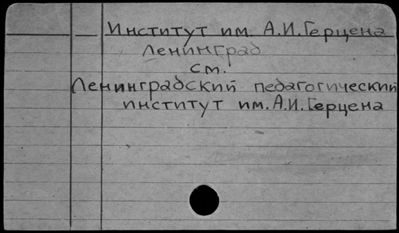 Институт им. А.И.Герцена
Ленинград
см.
Ленинградский педагогический
институт им. А.И.Герцена